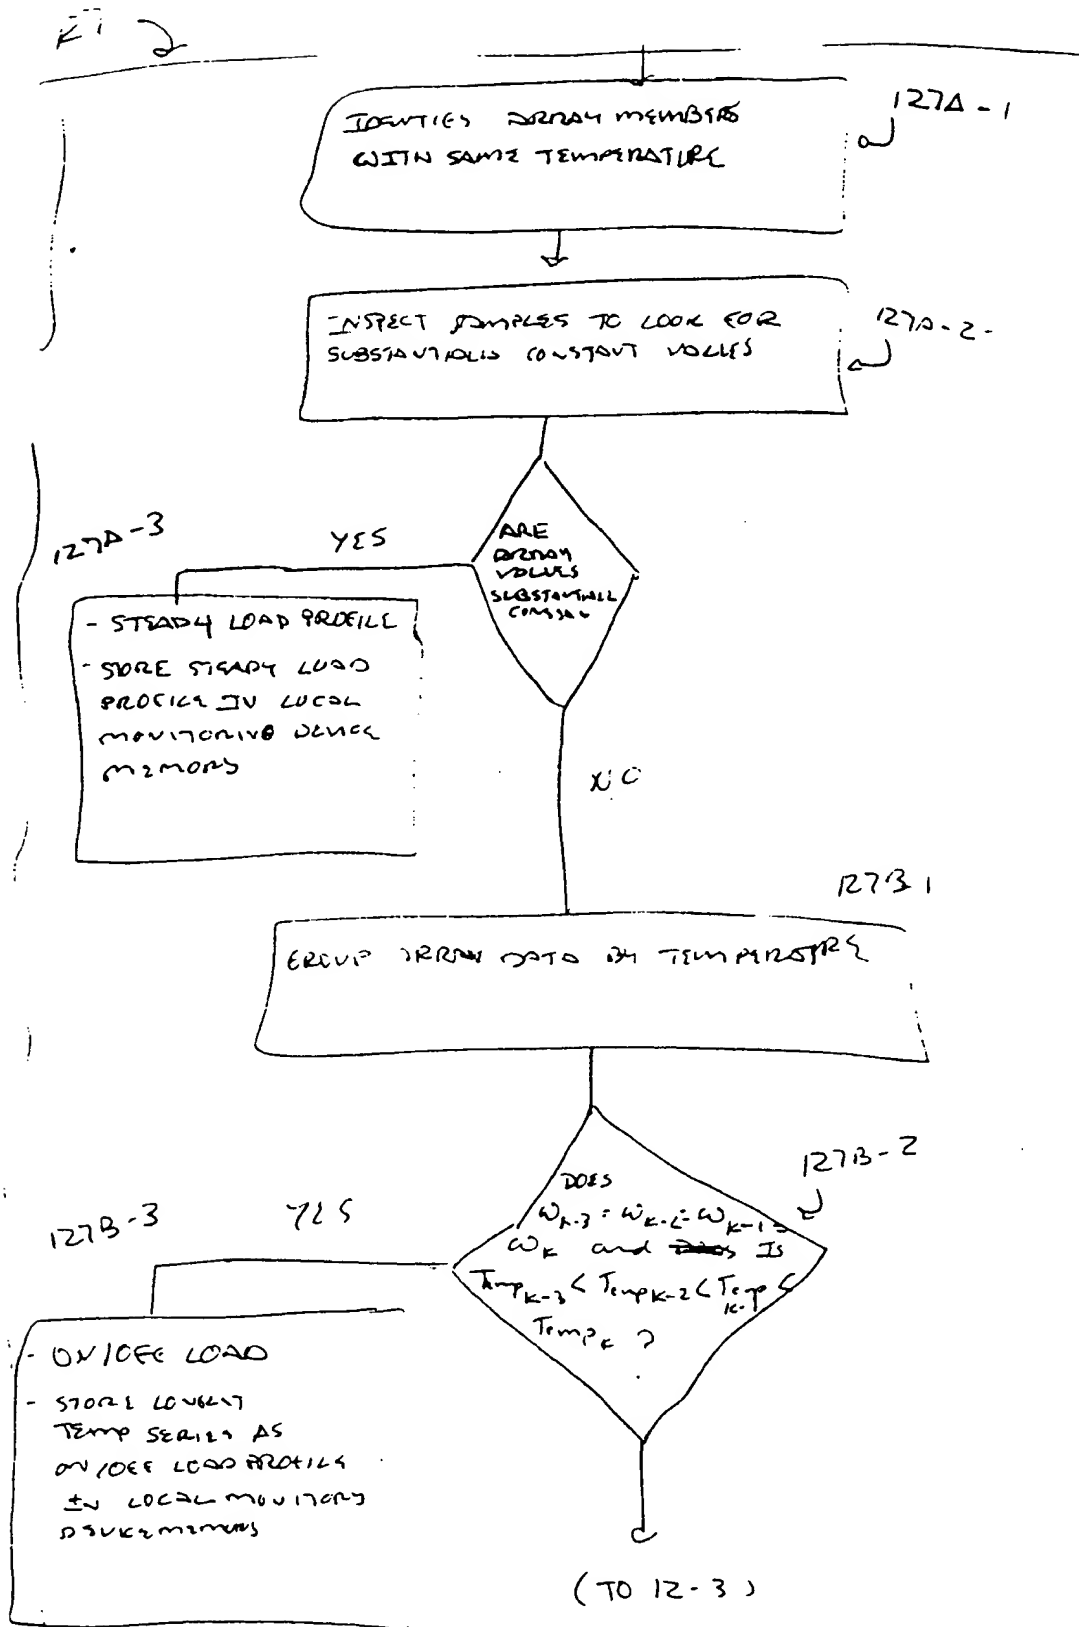 127A-1
IDENTIES ARRAY MEMBERS
WITH SAME TEMPERATURE
127A-2-
INSPECT SAMPLES TO LOOK FOR
SUBSTANTIALLY CONSTANT VALUES
127A-3
YES
ARE
ARRAY
VALUES
SUBSTANTIALL
- STEADY LOAD PROFILE
- STORE STEADY LOAD
PROFILE IN LOCAL
MONITORING DEVICE
MEMORY
NO
127B 1
GROUP ARRAY DATA BY TEMPERATURE
127B-2
DOES
ω k-3 = ω k-2 = ω k-1 =
ω k and Is
Temp k-3 < Temp k-2 < Temp k-1 <
Temp k ?
127B-3
YES
- ON/OFF LOAD
- STORE LOWEST
TEMP SERIES AS
ON/OFF LOAD PROFILE
IN LOCAL MONITORY
DEVICE MEMORY
(TO 12-3)